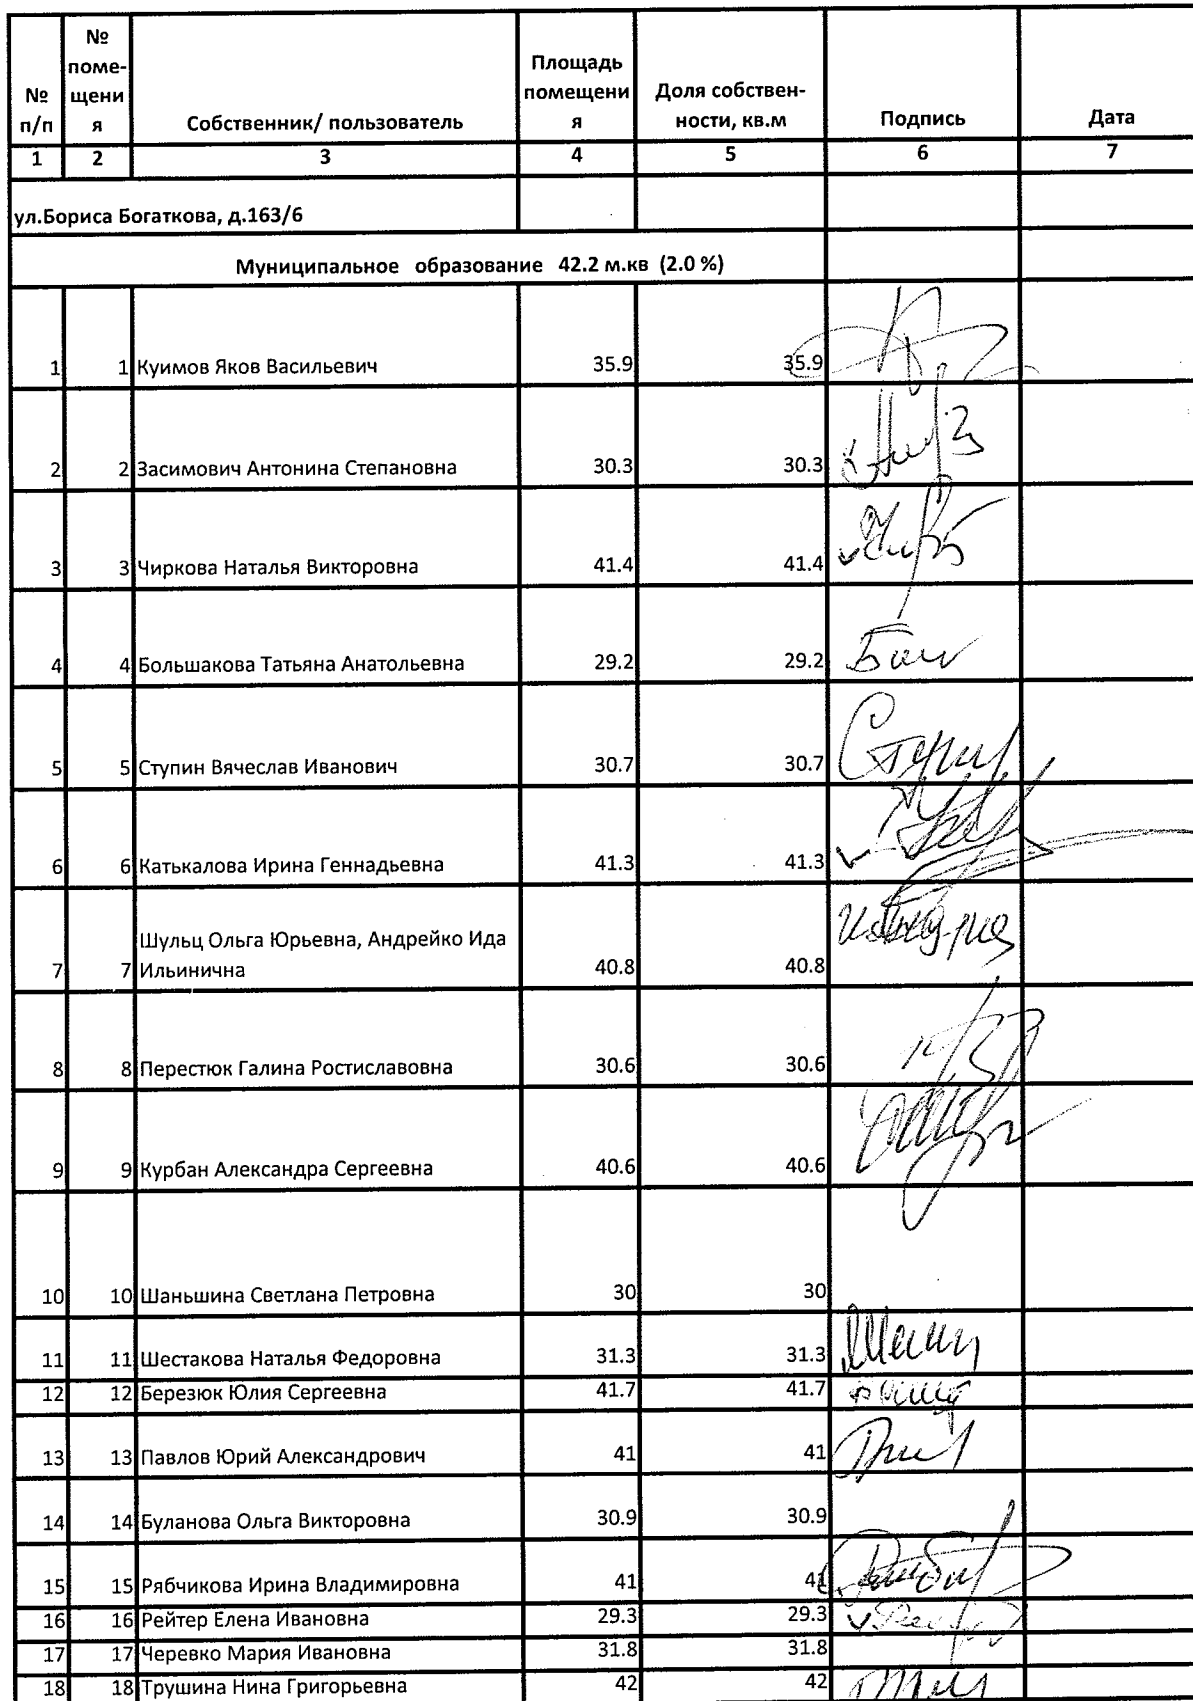 № п/п № поме- щени я Собственник/ пользователь Площадь помещени я Доля собствен- ности, кв.м Подпись Дата
1 2 3 4 5 6 7
ул.Бориса Богаткова, д.163/6
Муниципальное образование 42.2 м.кв (2.0 %)
1 1 Куимов Яков Васильевич 35.9 35.9
2 2 Засимович Антонина Степановна 30.3 30.3
3 3 Чиркова Наталья Викторовна 41.4 41.4
4 4 Большакова Татьяна Анатольевна 29.2 29.2
5 5 Ступин Вячеслав Иванович 30.7 30.7
6 6 Катькалова Ирина Геннадьевна 41.3 41.3
Шульц Ольга Юрьевна, Андрейко Ида
7 7 Ильинична 40.8 40.8
8 8 Перестюк Галина Ростиславовна 30.6 30.6
9 9 Курбан Александра Сергеевна 40.6 40.6
10 10 Шаньшина Светлана Петровна 30 30
11 11 Шестакова Наталья Федоровна 31.3 31.3
12 12 Березюк Юлия Сергеевна 41.7 41.7
13 13 Павлов Юрий Александрович 41 41
14 14 Буланова Ольга Викторовна 30.9 30.9
15 15 Рябчикова Ирина Владимировна 41 41
16 16 Рейтер Елена Ивановна 29.3 29.3
17 17 Черевко Мария Ивановна 31.8 31.8
18 18 Трушина Нина Григорьевна 42 42